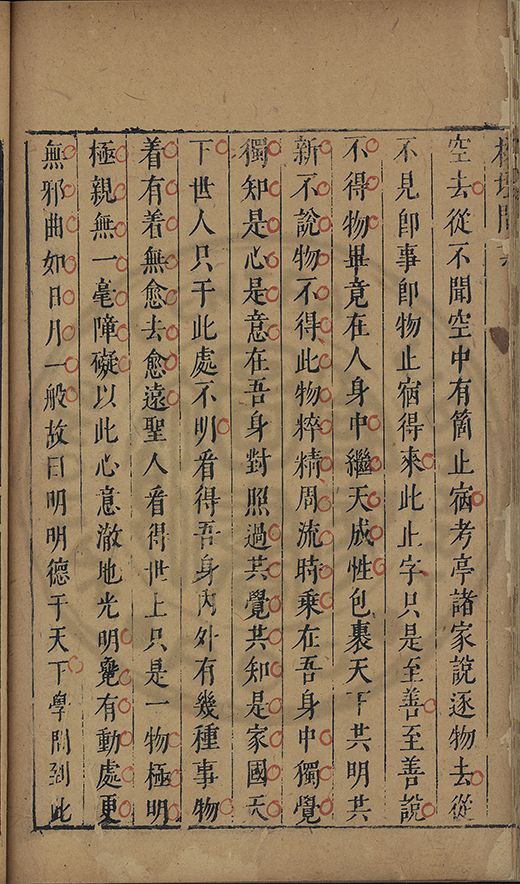 榕壇問
空去從不聞空中有箇止宿考亭諸家說逐物去從
不見卽事卽物止宿得來此止字只是至善至善說
不得物畢竟在人身中繼天成性包裹天下共明共
新不說物不得此物粹精周流時乗在吾身中獨覺
獨知是心是意在吾身對照過共覺共知是家國天
下世人只于此處不明看得吾身內外有幾種事物
着有着無愈去愈遠聖人看得世上只是一物極明
極親無一毫障礙以此心意澈地光明纔有動處更
無邪曲如日月一般故曰明明德于天下學問到此